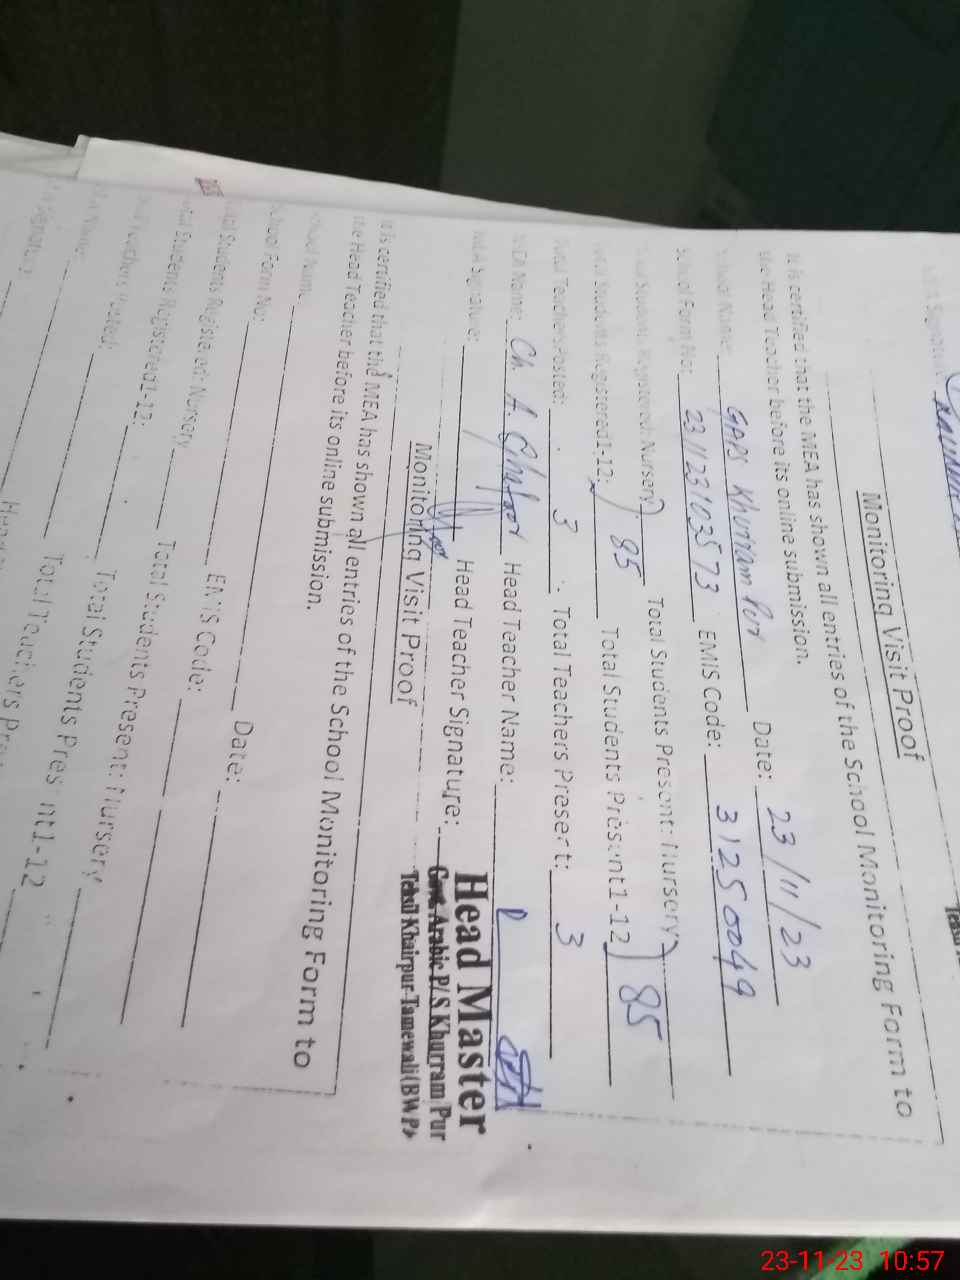 Monitoring Visit Proof
It is certified that the MEA has shown all entries of the School Monitoring Form to
the Head Teacher before its online submission.
School Name: GAPS Khurram Pur Date: 23/11/23
School Form No: 231123103573 EMIS Code: 31250049
Total Students Registered: Nursery) Total Students Present: Nursery)
Total Students Registered 1-12:) 85 Total Students Present 1-12) 85
Total Teachers Posted: 3 Total Teachers Present: 3
MEA Name: Ch. A. Ghafoor Head Teacher Name:
MEA Signature: Head Teacher Signature:
Head Master
Govt. Arabic P/S Khurram Pur
Tehsil Khairpur Tamewali (BWP)
Monitoring Visit Proof
It is certified that the MEA has shown all entries of the School Monitoring Form to
the Head Teacher before its online submission.
School Name: Date:
School Form No: EMIS Code:
Total Students Registered: Nursery Total Students Present: Nursery
Total Students Registered 1-12: Total Students Present 1-12
Total Teachers Posted: Total Teachers
MEA Name:
MEA Signature:
23-11-23 10:57